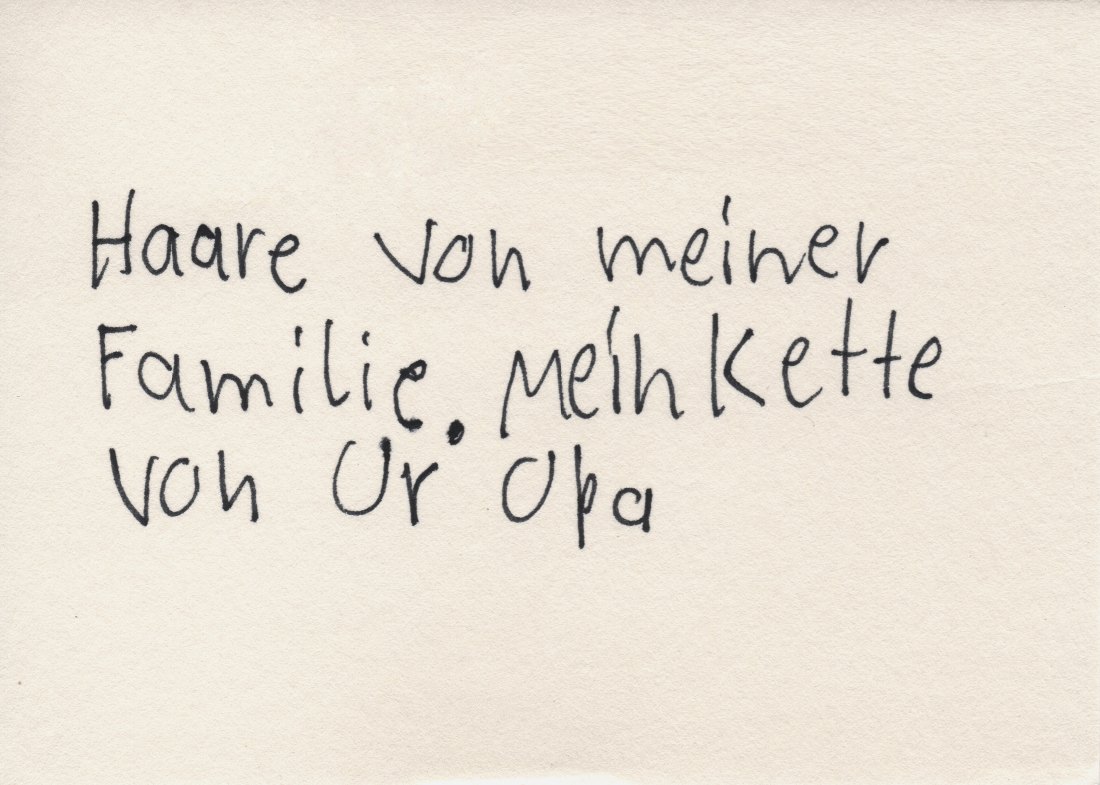 Haare von meiner
Familie. Mein Kette
von Ur Opa